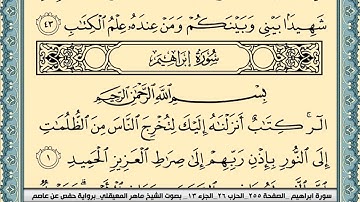 شَهِيدًا بَيْنِي وَبَيْنَكُمْ وَمَنْ عِندَهُۥ عِلْمُ ٱلْكِتَٰبِ ٤٣
سُورَةُ إِبْرَاهِيمَ
بِسْمِ ٱللَّهِ ٱلرَّحْمَٰنِ ٱلرَّحِيمِ
الٓر ۚ كِتَٰبٌ أَنزَلْنَٰهُ إِلَيْكَ لِتُخْرِجَ ٱلنَّاسَ مِنَ ٱلظُّلُمَٰتِ
إِلَى ٱلنُّورِ بِإِذْنِ رَبِّهِمْ إِلَىٰ صِرَٰطِ ٱلْعَزِيزِ ٱلْحَمِيدِ ١
سورة ابراهيم _ الصفحة ٢٥٥_ الحزب ٢٦_ الجزء ١٣_ بصوت الشيخ ماهر المعيقلي_ برواية حفص عن عاصم